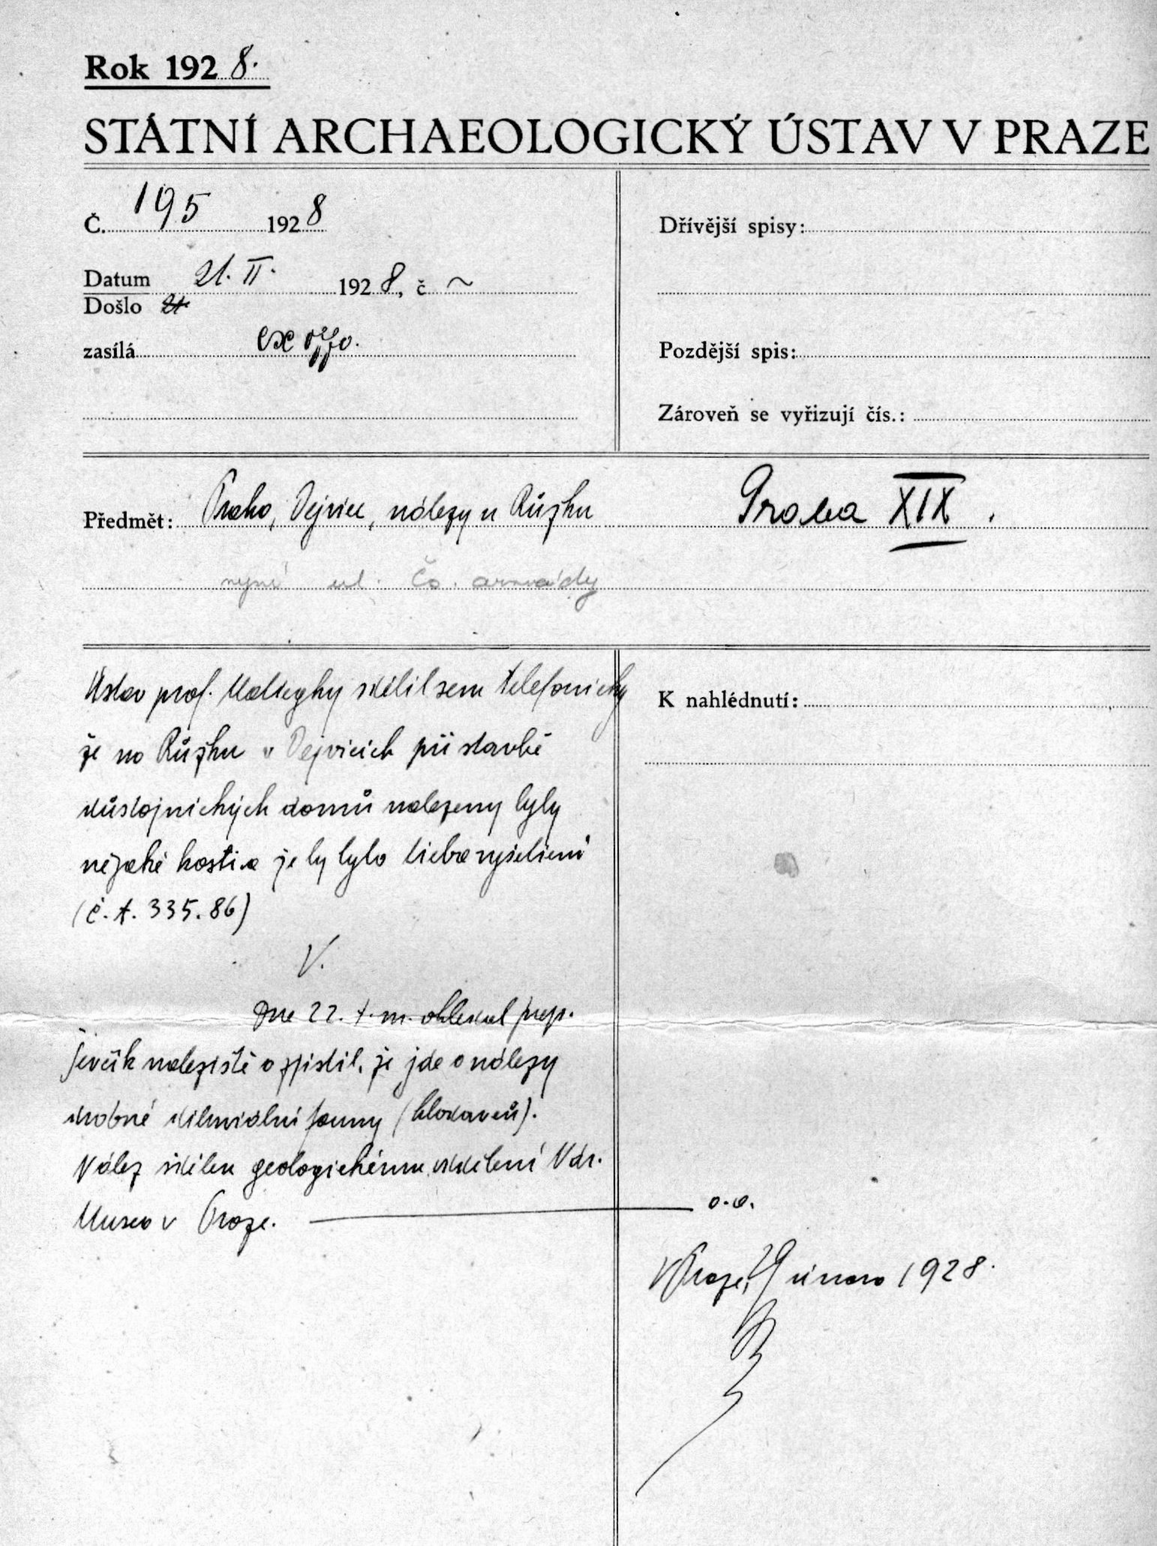 Rok 1928.
STÁTNÍ ARCHAEOLOGICKÝ ÚSTAV V PRAZE
Č. 195 1928
Datum 21. II. 1928, č ~
Došlo
zasílá ex offo.
Dřívější spisy:
Pozdější spis:
Zároveň se vyřizují čís.:
Předmět: Praha, Dejvice, nálezy u Růžku Praha XIX.
nyní ul. Čs. armády
Ústav prof. Matieghy sdělil sem telefonicky
že na Růžku v Dejvicích při stavbě
důstojnických domů nalezeny byly
nějaké kosti a je by bylo třeba vyšetření
(č. t. 335.86)
V.
Dne 22. t. m. ohledal prep.
Jevčík naleziště a zjistil, že jde o nálezy
drobné diluviální fauny (hlodavců).
Nález sdělen geologickému oddělení Nár.
Musea v Praze.
K nahlédnutí:
a.a.
V Praze, 29 února 1928.